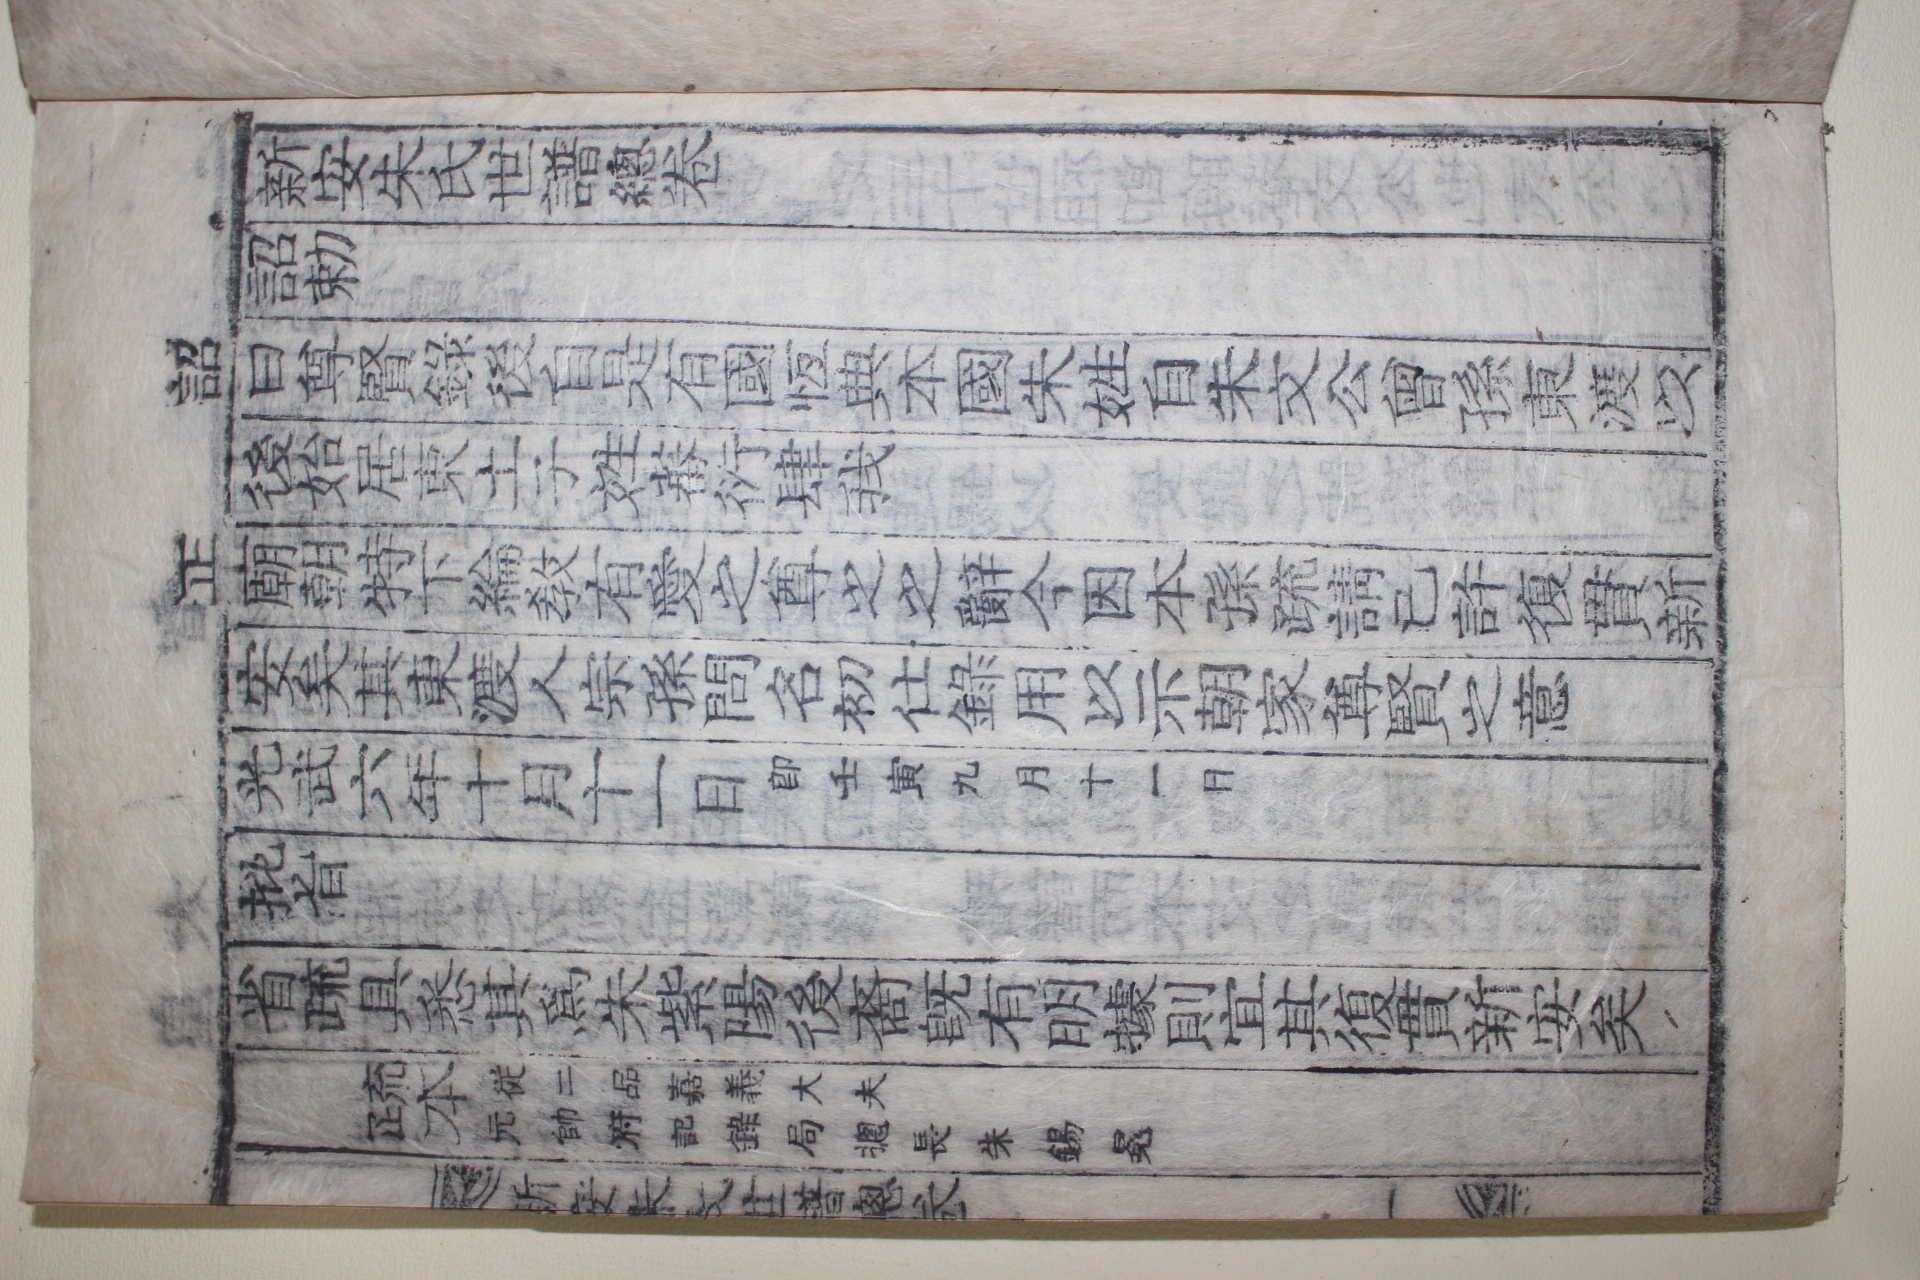 新安朱氏世譜總卷
詔勅
詔曰尊賢錄後自是有國恒典本國朱姓自朱文公曾孫東渡以
後始居東土子姓蕃衍肆我
正廟朝特下綸教有愛之尊之之辭今因本孫疏請已許復貫新
安矣其東渡人宗孫問名初仕錄用以示朝家尊賢之意
光武六年十月十一日卽壬寅九月十一日
批旨
省疏具悉其爲朱紫陽後裔旣有明據則宜其復貫新安矣
疏本從二品嘉義大夫
正刀元帥府記錄局摠長朱錫冕
新安朱氏世譜總卷 一